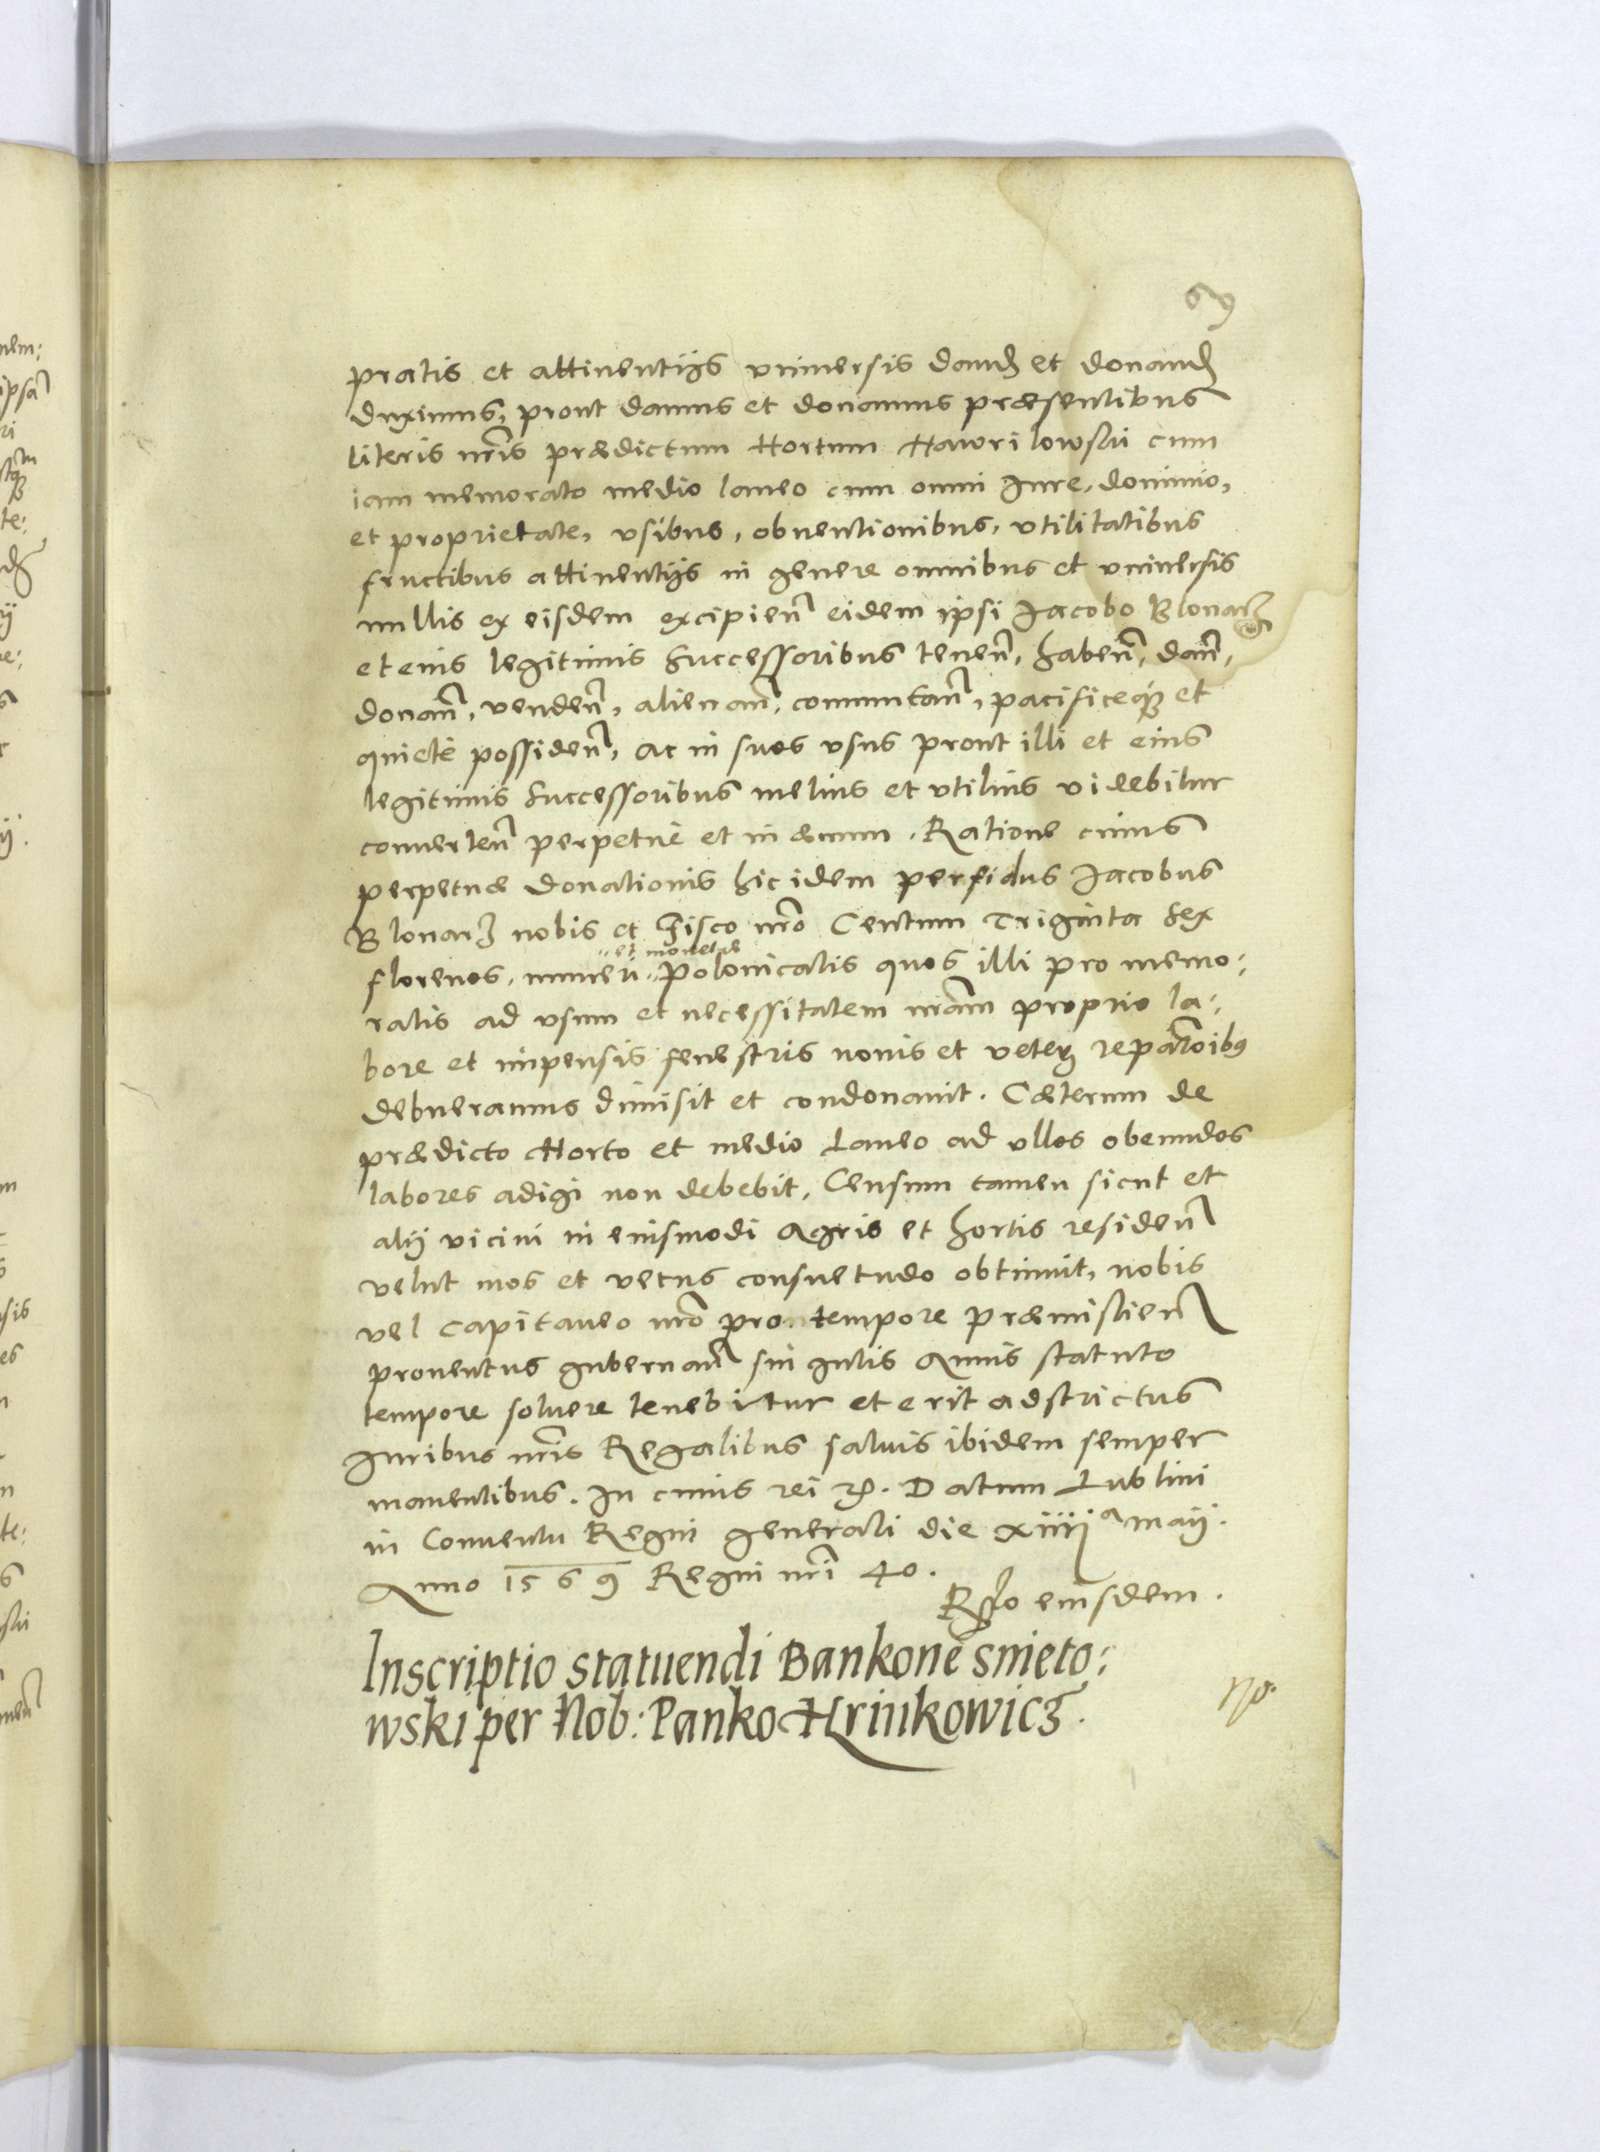 69
pratis et attinentijs vniuersis dand et donand
duximus, prout damus et donamus præsentibus
literis nris prædictum Hortum Hawrilowski cum
iam memorato medio laneo cum omni Iure, dominio,
et proprietate, vsibus, obuentionibus, vtilitatibus
fructibus attinentijs in genere omnibus et vniuersis
nullis ex eisdem excipien eidem ipsi Jacobo Blonarz
et eius legitimis Successoribus tenen, haben, dan,
donan, venden, alienan, comutan, pacificeque et
quietè possiden, ac in suos vsus prout illi et eius
legitimis Successoribus melius et vtilius videbitur
conuerten perpetuè et in æuum. Ratione cuius
perpetuæ donationis hic idem perfidus Jacobus
Blonarz nobis et Fisco nro Centum Triginta sex
florenos, numeri et monetæ Polonicalis quos illi pro memo:
ratis ad vsum et necessitatem nram proprio la:
bore et impensis fenestris nouis et veter reparaoibus
debueramus dimisit et condonauit. Cæterum de
prædicto Horto et medio Laneo ad vllos obeundos
labores adigi non debebit, Censum tamen sicut et
alij vicini in eiusmodi Agris et hortis residen
velut mos et vetus consuetudo obtinuit, nobis
vel Capitaneo nro pro tempore Præmislien
prouentus gubernan singulis Annis statuto
tempore soluere tenebitur et erit adstrictus
Iuribus nris Regalibus saluis ibidem semper
manentibus. In cuius rei etc. Datum Lublini
in Conuentu Regni generali die xiiija maij.
Anno 1569 Regni nri 40.
Rlo eiusdem.
Inscriptio statuendi Bankonē snieto:
wski per Nob: Panko Hrinkowicz.